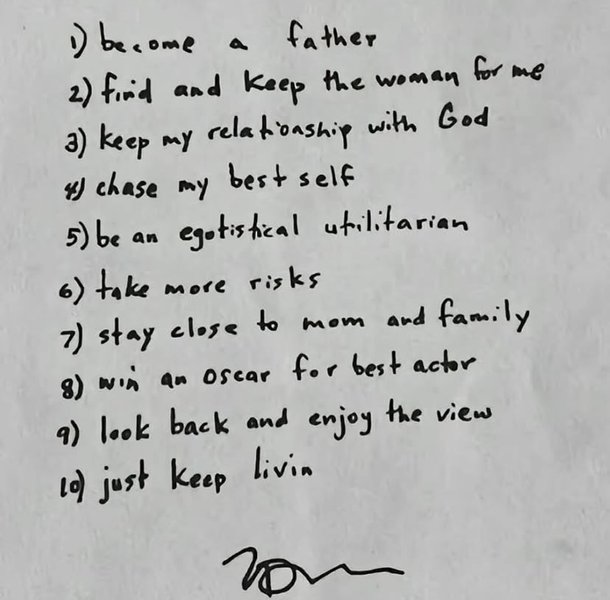 1) become a father
2) find and keep the woman for me
3) keep my relationship with God
4) chase my best self
5) be an egotistical utilitarian
6) take more risks
7) stay close to mom and family
8) win an oscar for best actor
9) look back and enjoy the view
10) just keep livin